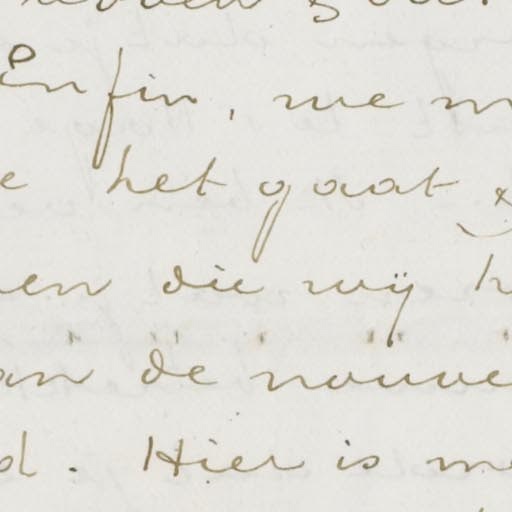 Enfin, we m
e het gaat
en die wij h
an de nouve
d. Hier is me